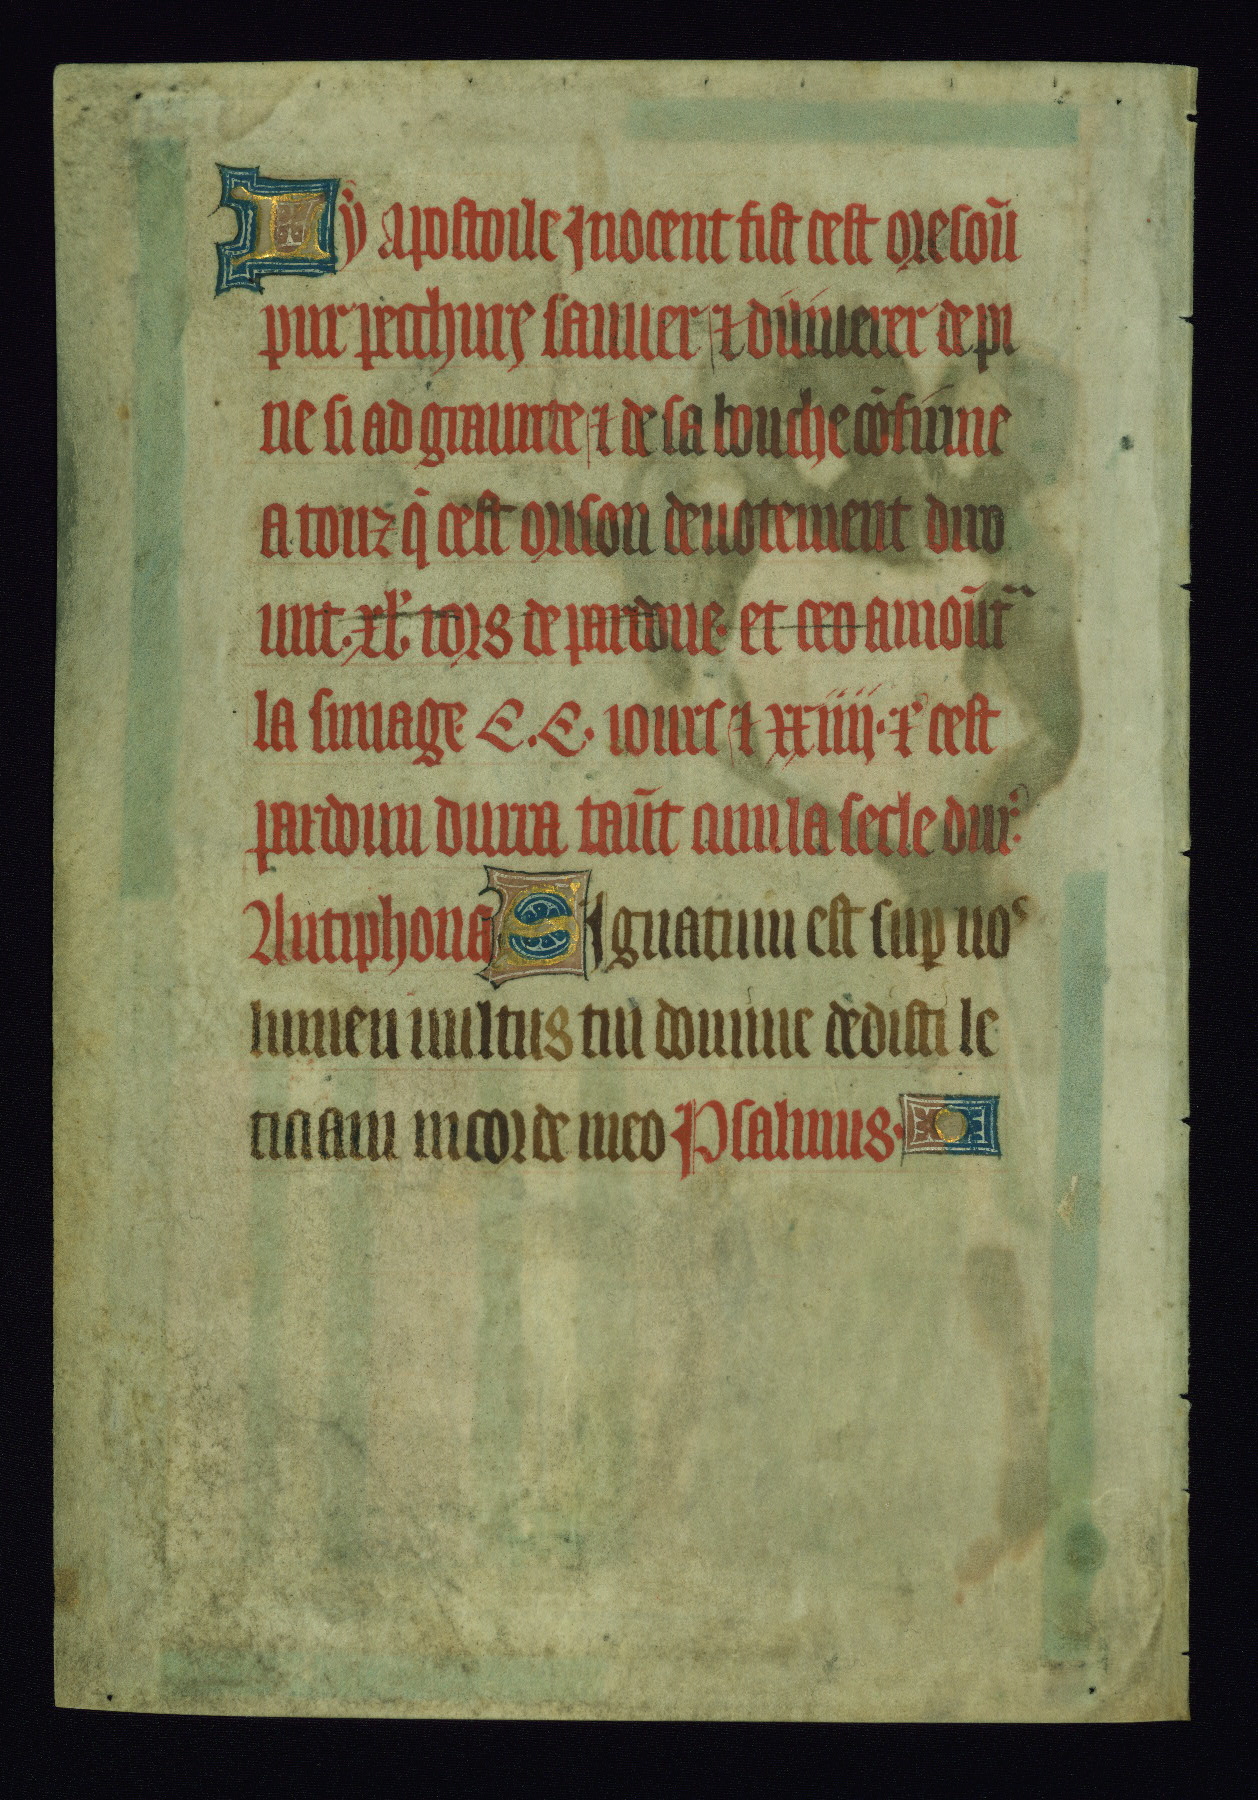 Ly apostoile Jnocent fist cest oresoũ
pur pecchurs sauuer ⁊ diliuerer de pi
ne si ad graunte ⁊ de sa bouche cõfirme
a touz q̃ cest orison deuotement diro
unt .xl. iors de pardone. et ceo amoũt
la simage. C.C. iours ⁊ xxiiii. ⁊ cest
pardoun durra taũt cum la secle dur
Antiphona Signatum est sup nos
lumen uultus tui domine dedisti le
ticiam in corde meo Psalmus.